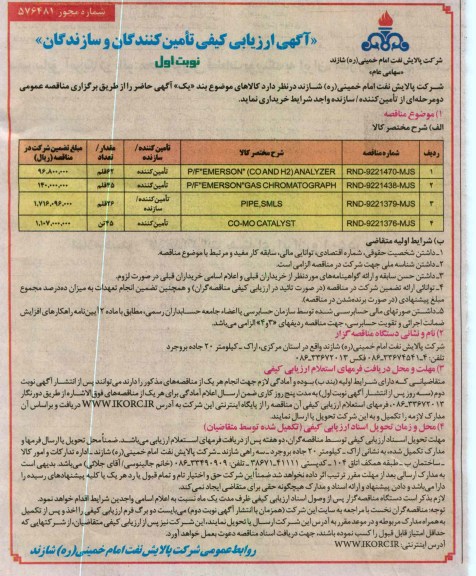 شماره مجوز: ۵۷۶۴۸۱
«آگهی ارزیابی کیفی تأمین کنندگان و سازندگان»
نوبت اول
شرکت پالایش نفت امام خمینی(ره) شازند
«سهامی عام»
شرکت پالایش نفت امام خمینی(ره) شازند درنظر دارد کالاهای موضوع بند «یک» آگهی حاضر را از طریق برگزاری مناقصه عمومی
دومرحله‌ای از تأمین کننده/ سازنده واجد شرایط خریداری نماید.
۱) موضوع مناقصه
الف) شرح مختصر کالا
ردیف شماره مناقصه شرح مختصر کالا تأمین کننده/ سازنده مقدار/ تعداد مبلغ تضمین شرکت در مناقصه (ریال)
۱ RND-9221470-MJS P/F"EMERSON" (CO AND H2) ANALYZER تأمین‌کننده ۶۲قلم ۹۶,۸۰۰,۰۰۰
۲ RND-9221438-MJS P/F"EMERSON"GAS CHROMATOGRAPH تأمین‌کننده ۴۵قلم ۱۴۰,۰۰۰,۰۰۰
۳ RND-9221379-MJS PIPE,SMLS تأمین‌کننده/ سازنده ۲۶قلم ۱,۷۱۶,۰۹۶,۰۰۰
۴ RND-9221376-MJS CO-MO CATALYST تأمین‌کننده ۴۵تن ۱,۱۰۷,۰۰۰,۰۰۰
ب) شرایط اولیه متقاضی
۱_داشتن شخصیت حقوقی، شماره اقتصادی، توانایی مالی، سابقه کار مفید و مرتبط با موضوع مناقصه.
۲_داشتن شناسه ملی جهت شرکت در مناقصه الزامی است.
۳_داشتن حسن سابقه و ارائه گواهینامه‌های موردنظر از خریداران قبلی و اعلام اسامی خریداران قبلی در صورت لزوم.
۴_توانائی ارائه تضمین شرکت در مناقصه (در صورت تائید در ارزیابی کیفی مناقصه‌گران) و همچنین تضمین انجام تعهدات به میزان ده‌درصد مجموع
مبلغ پیشنهادی (در صورت برنده‌شدن در مناقصه).
۵_داشتن صورتهای مالی حسابرسی شده توسط سازمان حسابرسی یا اعضاء جامعه حسابداران رسمی، مطابق با ماده ۲ آیین‌نامه راهکارهای افزایش
ضمانت اجرائی و تقویت حسابرسی، جهت مناقصه ردیفهای «۳و۴» الزامی می‌باشد.
۲) نام و نشانی دستگاه مناقصه گزار
شرکت پالایش نفت امام خمینی(ره) شازند واقع در استان مرکزی، اراک_ کیلومتر ۲۰ جاده بروجرد
۳) مهلت و محل دریافت فرمهای استعلام ارزیابی کیفی
متقاضیانی که دارای شرایط اولیه (بند ب) بوده و آمادگی لازم جهت انجام هر یک از مناقصه‌های مذکور را دارند می‌توانند پس از انتشار آگهی نوبت
دوم (سه روز پس از انتشار آگهی نوبت اول) به مدت پنج روز کاری ضمن ارسال اعلام آمادگی برای هر یک از مناقصه‌های فوق‌الاشاره از طریق دورنگار
۰۸۶-۳۳۶۷۲۰۱۳، فرمهای استعلام ارزیابی کیفی آن مناقصه را از پایگاه اینترنتی این شرکت به آدرس WWW.IKORC.IR دریافت و براساس آن
مدارک لازمه را تکمیل و به این شرکت تحویل یا ارسال نمایند.
۴) محل و زمان تحویل اسناد ارزیابی کیفی (تکمیل شده توسط متقاضیان)
مهلت تحویل اسناد ارزیابی کیفی توسط مناقصه‌گران، دو هفته پس از دریافت فرمهای استعلام ارزیابی می‌باشد. ضمناً محل تحویل یا ارسال فرمها و
مدارک تکمیل شده، به نشانی اراک_ کیلومتر ۲۰ جاده بروجرد_ سه راهی شازند_ شرکت پالایش نفت امام خمینی(ره) شازند_ اداره تدارکات و امور کالا
_ ساختمان ب_ طبقه همکف اتاق ۱۰۴_ کدپستی ۳۸۶۷۱۴۱۱۱۱ _ تلفن ۳۳۴۹۰۹۰۹-۰۸۶ (خانم جالینوسی/ آقای جلالی) می‌باشد. بدیهی است
به مدارک ارسالی بعد از مهلت مقرر ترتیب اثر داده نخواهد شد ضمناً این شرکت حق و اختیار تام و تمام قبول یا رد هر یک یا کلیه پیشنهادهای رسیده را
دارا می‌باشد و دادن پیشنهاد و ارائه اسناد و مدارک هیچگونه حقی برای متقاضی ایجاد نمی‌کند.
لازم بذکر است دستگاه مناقصه‌گزار پس از وصول اسناد ارزیابی کیفی ظرف مدت یک ماه نسبت به اعلام اسامی واجدین شرایط اقدام خواهد نمود.
توجه: مناقصه‌گران نخست با مراجعه به سایت این شرکت (همزمان با انتشار آگهی نوبت دوم) می‌بایست دو برگ فرم ارزیابی کیفی را اخذ و پس از تکمیل
به همراه مدارک مربوطه و در موعد مقرر به آدرس این شرکت ارسال یا تحویل نمایند، این شرکت نیز پس از ارزیابی کیفی متقاضیان، از شرکتهایی که
حداقل امتیاز قابل قبول را کسب نموده باشند، جهت دریافت اسناد مناقصه دعوت بعمل خواهد آورد.
آدرس اینترنتی: WWW.IKORC.IR
روابط عمومی شرکت پالایش نفت امام خمینی(ره) شازند